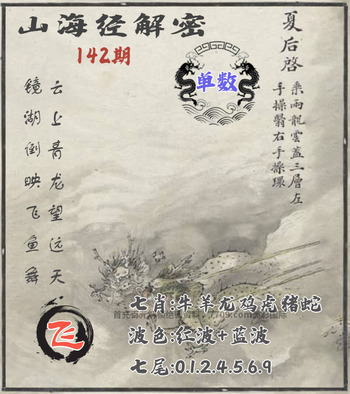 山海经解密
142期
夏后啓
乘兩龍雲蓋三層左
手操翳右手操環
单数
云上青龙望远天
镜湖倒映飞鱼舞
飞
七肖:牛羊龙鸡虎猪蛇
波色:红波+蓝波
七尾:0.1.2.4.5.6.9